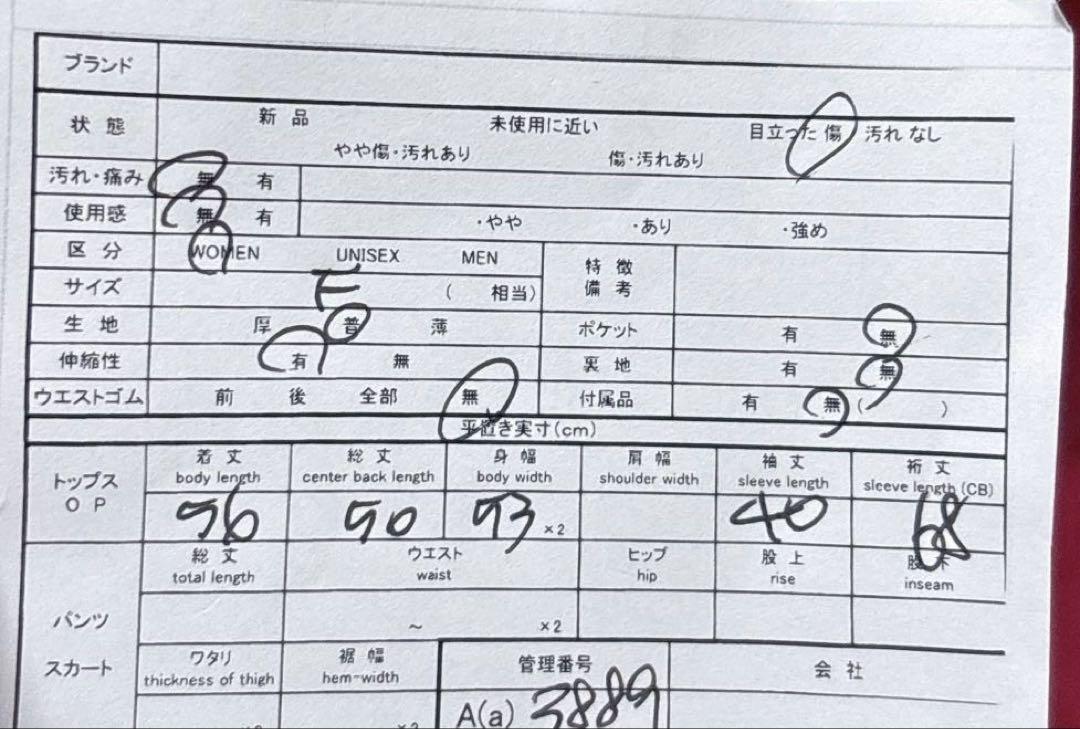 ブランド
状態 新品 未使用に近い 目立った傷 汚れ なし
やや傷・汚れあり 傷・汚れあり
汚れ・痛み 無 有
使用感 無 有 ・やや ・あり ・強め
区分 WOMEN UNISEX MEN 特徴
備考
サイズ F ( 相当)
生地 厚 普 薄 ポケット 有 無
伸縮性 有 無 裏地 有 無
ウエストゴム 前 後 全部 無 付属品 有 無 ( )
平置き実寸(cm)
トップス
OP
着丈 総丈 身幅 肩幅 袖丈 裄丈
body length center back length body width shoulder width sleeve length sleeve length (CB)
×2 40 68
総丈 ウエスト ヒップ 股上 股下
total length waist hip rise inseam
パンツ ～ ×2
スカート
ワタリ 裾幅 管理番号 会社
thickness of thigh hem-width
A(a) 3889